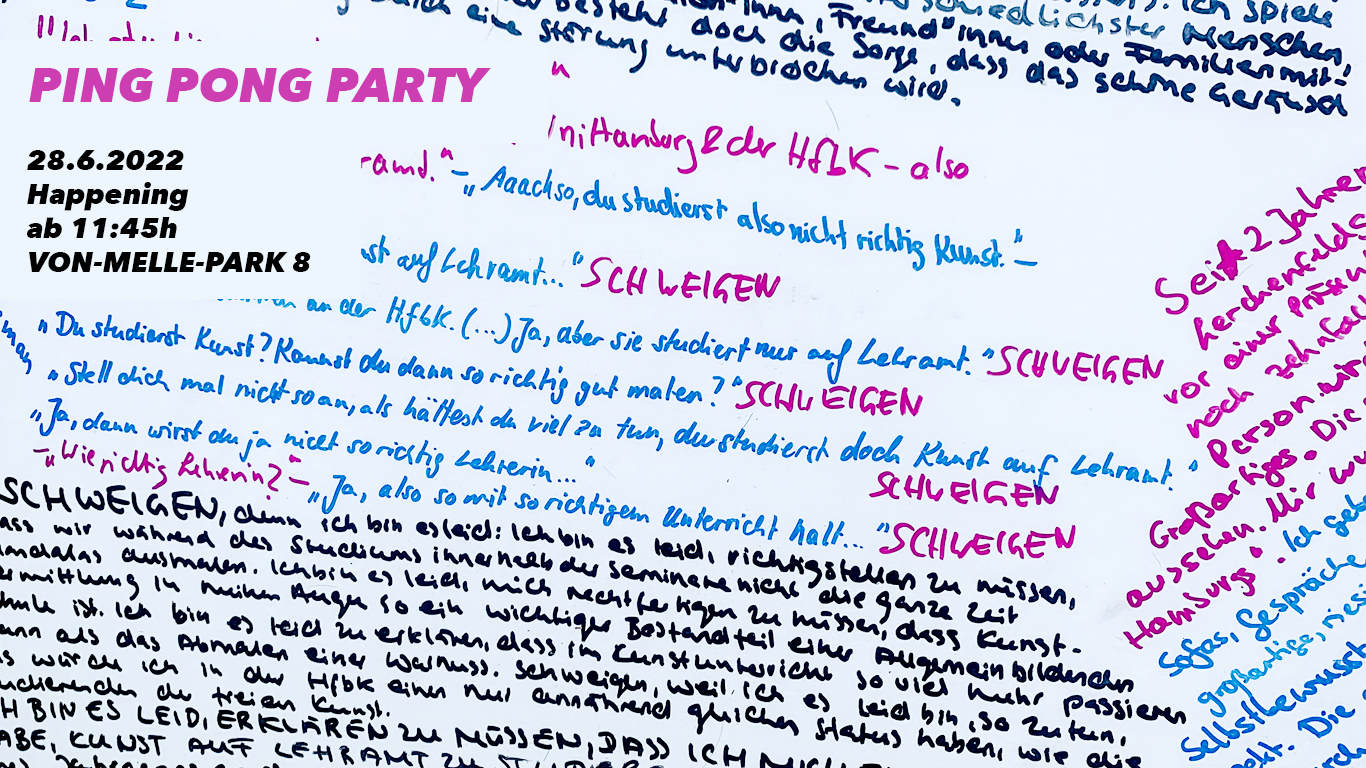 PING PONG PARTY
28.6.2022
Happening
ab 11:45h
VON-MELLE-PARK 8
Ich spiele
besteht doch die Sorge, dass das schöne Geräusch
Freund*innen oder Familienmit-
Menschen,
eine Störung unterbrochen wird.
"
in Hamburg & der HfbK - also
ramt." - „Aaachso, du studierst also nicht richtig Kunst." -
st auf Lehramt..." SCHWEIGEN
an der HfbK. (...) Ja, aber sie studiert nur auf Lehramt." SCHWEIGEN
„Du studierst Kunst? Kannst du dann so richtig gut malen?" SCHWEIGEN
„Stell dich mal nicht so an, als hättest du viel zu tun, du studierst doch Kunst auf Lehramt."
SCHWEIGEN
„Ja, dann wirst du ja nicht so richtig Lehrerin..."
- „Wie richtig Lehrerin?" - „Ja, also so mit so richtigem Unterricht halt..." SCHWEIGEN
SCHWEIGEN, denn ich bin es leid: Ich bin es leid, richtigstellen zu müssen,
ass wir während des Studiums innerhalb der Seminare nicht die ganze Zeit
andalas ausmalen. Ich bin es leid, mich rechtfertigen zu müssen, dass Kunst-
ermittlung in meinen Augen so ein wichtiger Bestandteil einer Allgemeinbildenden
chule ist. Ich bin es leid zu erklären, dass im Kunstunterricht so viel mehr passieren
ann als das Abmalen einer Walnuss. Schweigen, weil ich es leid bin, so zu tun,
s würde ich in der HfbK einen nur annährend gleichen Status haben, wie die
udierenden der freien Kunst.
H BIN ES LEID, ERKLÄREN ZU MÜSSEN, DASS ICH
ABE, KUNST AUF LEHRAMT ZU
Seit 2 Jahren
Lerchenfelds
vor einer
noch zehnfach
Person wird
Großartiges. Die
aussehen. Mir
Hamburgs". Ich
Sofas, Gespräche
großartige,
Selbstbewusst
Die